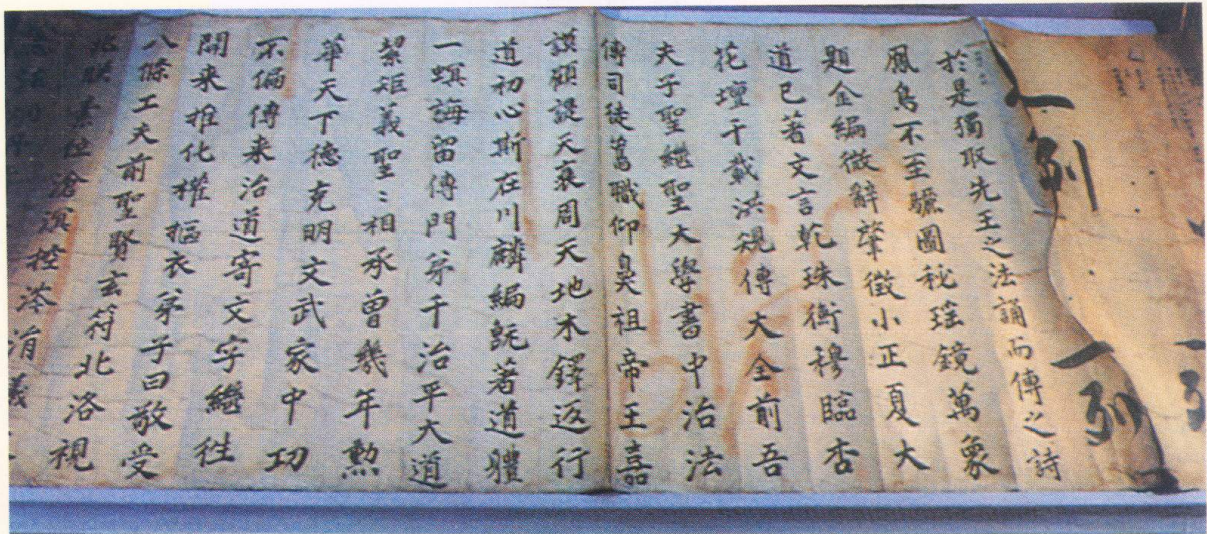 一列
一列
於是獨取先王之法誦而傳之詩
鳳鳥不至驪圖秘瑶鏡萬象
題金編微辭肇徵小正夏大
道已著文言乾珠衡穆臨杏
花壇千載洪規傳大全前吾
夫子聖繼聖大學書中治法
傳司徒舊職仰祖帝王嘉
謨顧諟天衷周天地木鐸返行
道初心斯在川麟編旣著道軆
一誨留傳門弟千治平大道
絜矩義聖〻相承曾幾年勲
華天下德克明文武家中功
不偏傳来治道寄文字繼徃
開来推化權摳衣弟子曰敬受
八條工夫前聖賢玄符北洛視
滄溟控涓義